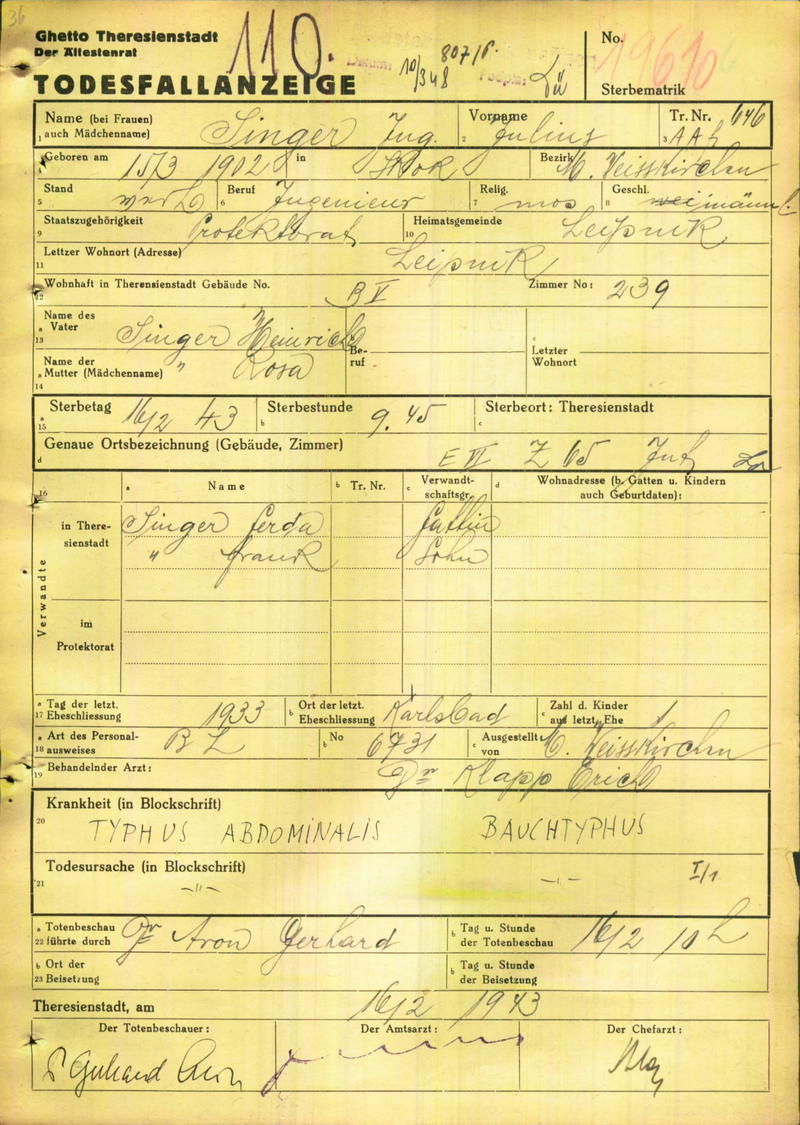 36
Ghetto Theresienstadt
Der Ältestenrat
110.
Datum: 10/3 48 807/r.
No. 19610
TODESFALLANZEIGE
Sterbematrik
Name (bei Frauen) Singer Ing. Vorname Julius Tr. Nr. 646
1 auch Mädchenname) 2 3 AAt
4 Geboren am 15/3 1902 in Bezirk M. Weisskirchen
Stand verh. Beruf Ingenieur Relig. mos Geschl. männl.
5 6 7 8
Staatszugehörigkeit Protektorat Heimatsgemeinde Leipnik
9 10
Lettzer Wohnort (Adresse) Leipnik
11
Wohnhaft in Theresienstadt Gebäude No. B V Zimmer No: 239
12
Name des
a Vater Singer Heinrich
13
Name der
a Mutter (Mädchenname) " Rosa
14
b Be-
ruf
c Letzter
Wohnort
a Sterbetag 16/2 43 b Sterbestunde 9.45 c Sterbeort: Theresienstadt
15
Genaue Ortsbezeichnung (Gebäude, Zimmer) E VI Z 65
d
16 a Name b Tr. Nr. c Verwandt-
schaftsgr. d Wohnadresse (b. Gatten u. Kindern
auch Geburtdaten):
Verwandte
in There-
sienstadt
Singer Gerda Gattin
" Frank Sohn
im
Protektorat
a Tag der letzt.
17 Eheschliessung 1933 b Ort der letzt.
Eheschliessung Karlsbad c Zahl d. Kinder
aus letzt. Ehe 1
a Art des Personal-
18 ausweises B L b No 6731 c Ausgestellt
von M. Weisskirchen
19 Behandelnder Arzt: Dr Klapp Erich
Krankheit (in Blockschrift)
20 TYPHUS ABDOMINALIS BAUCHTYPHUS
Todesursache (in Blockschrift) I/1
21 —"— —"—
a Totenbeschau
22 führte durch Dr Aron Gerhard b Tag u. Stunde
der Totenbeschau 16/2 10 h
b Ort der
23 Beisetzung b Tag u. Stunde
der Beisetzung
Theresienstadt, am 16/2 1943
Der Totenbeschauer: Der Amtsarzt: Der Chefarzt:
Dr Gerhard Aron